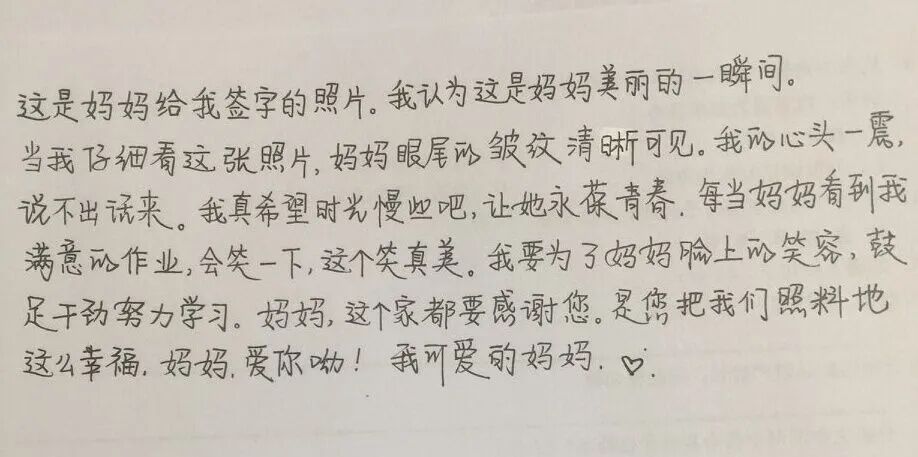 这是妈妈给我签字的照片。我认为这是妈妈美丽的一瞬间。
当我仔细看这张照片,妈妈眼尾的皱纹清晰可见。我的心头一震,
说不出话来。我真希望时光慢些吧,让她永葆青春.每当妈妈看到我
满意的作业,会笑一下,这个笑真美。我要为了妈妈脸上的笑容,鼓
足干劲努力学习。妈妈,这个家都要感谢您。是您把我们照料地
这么幸福.妈妈.爱你呦!我可爱的妈妈.♡.